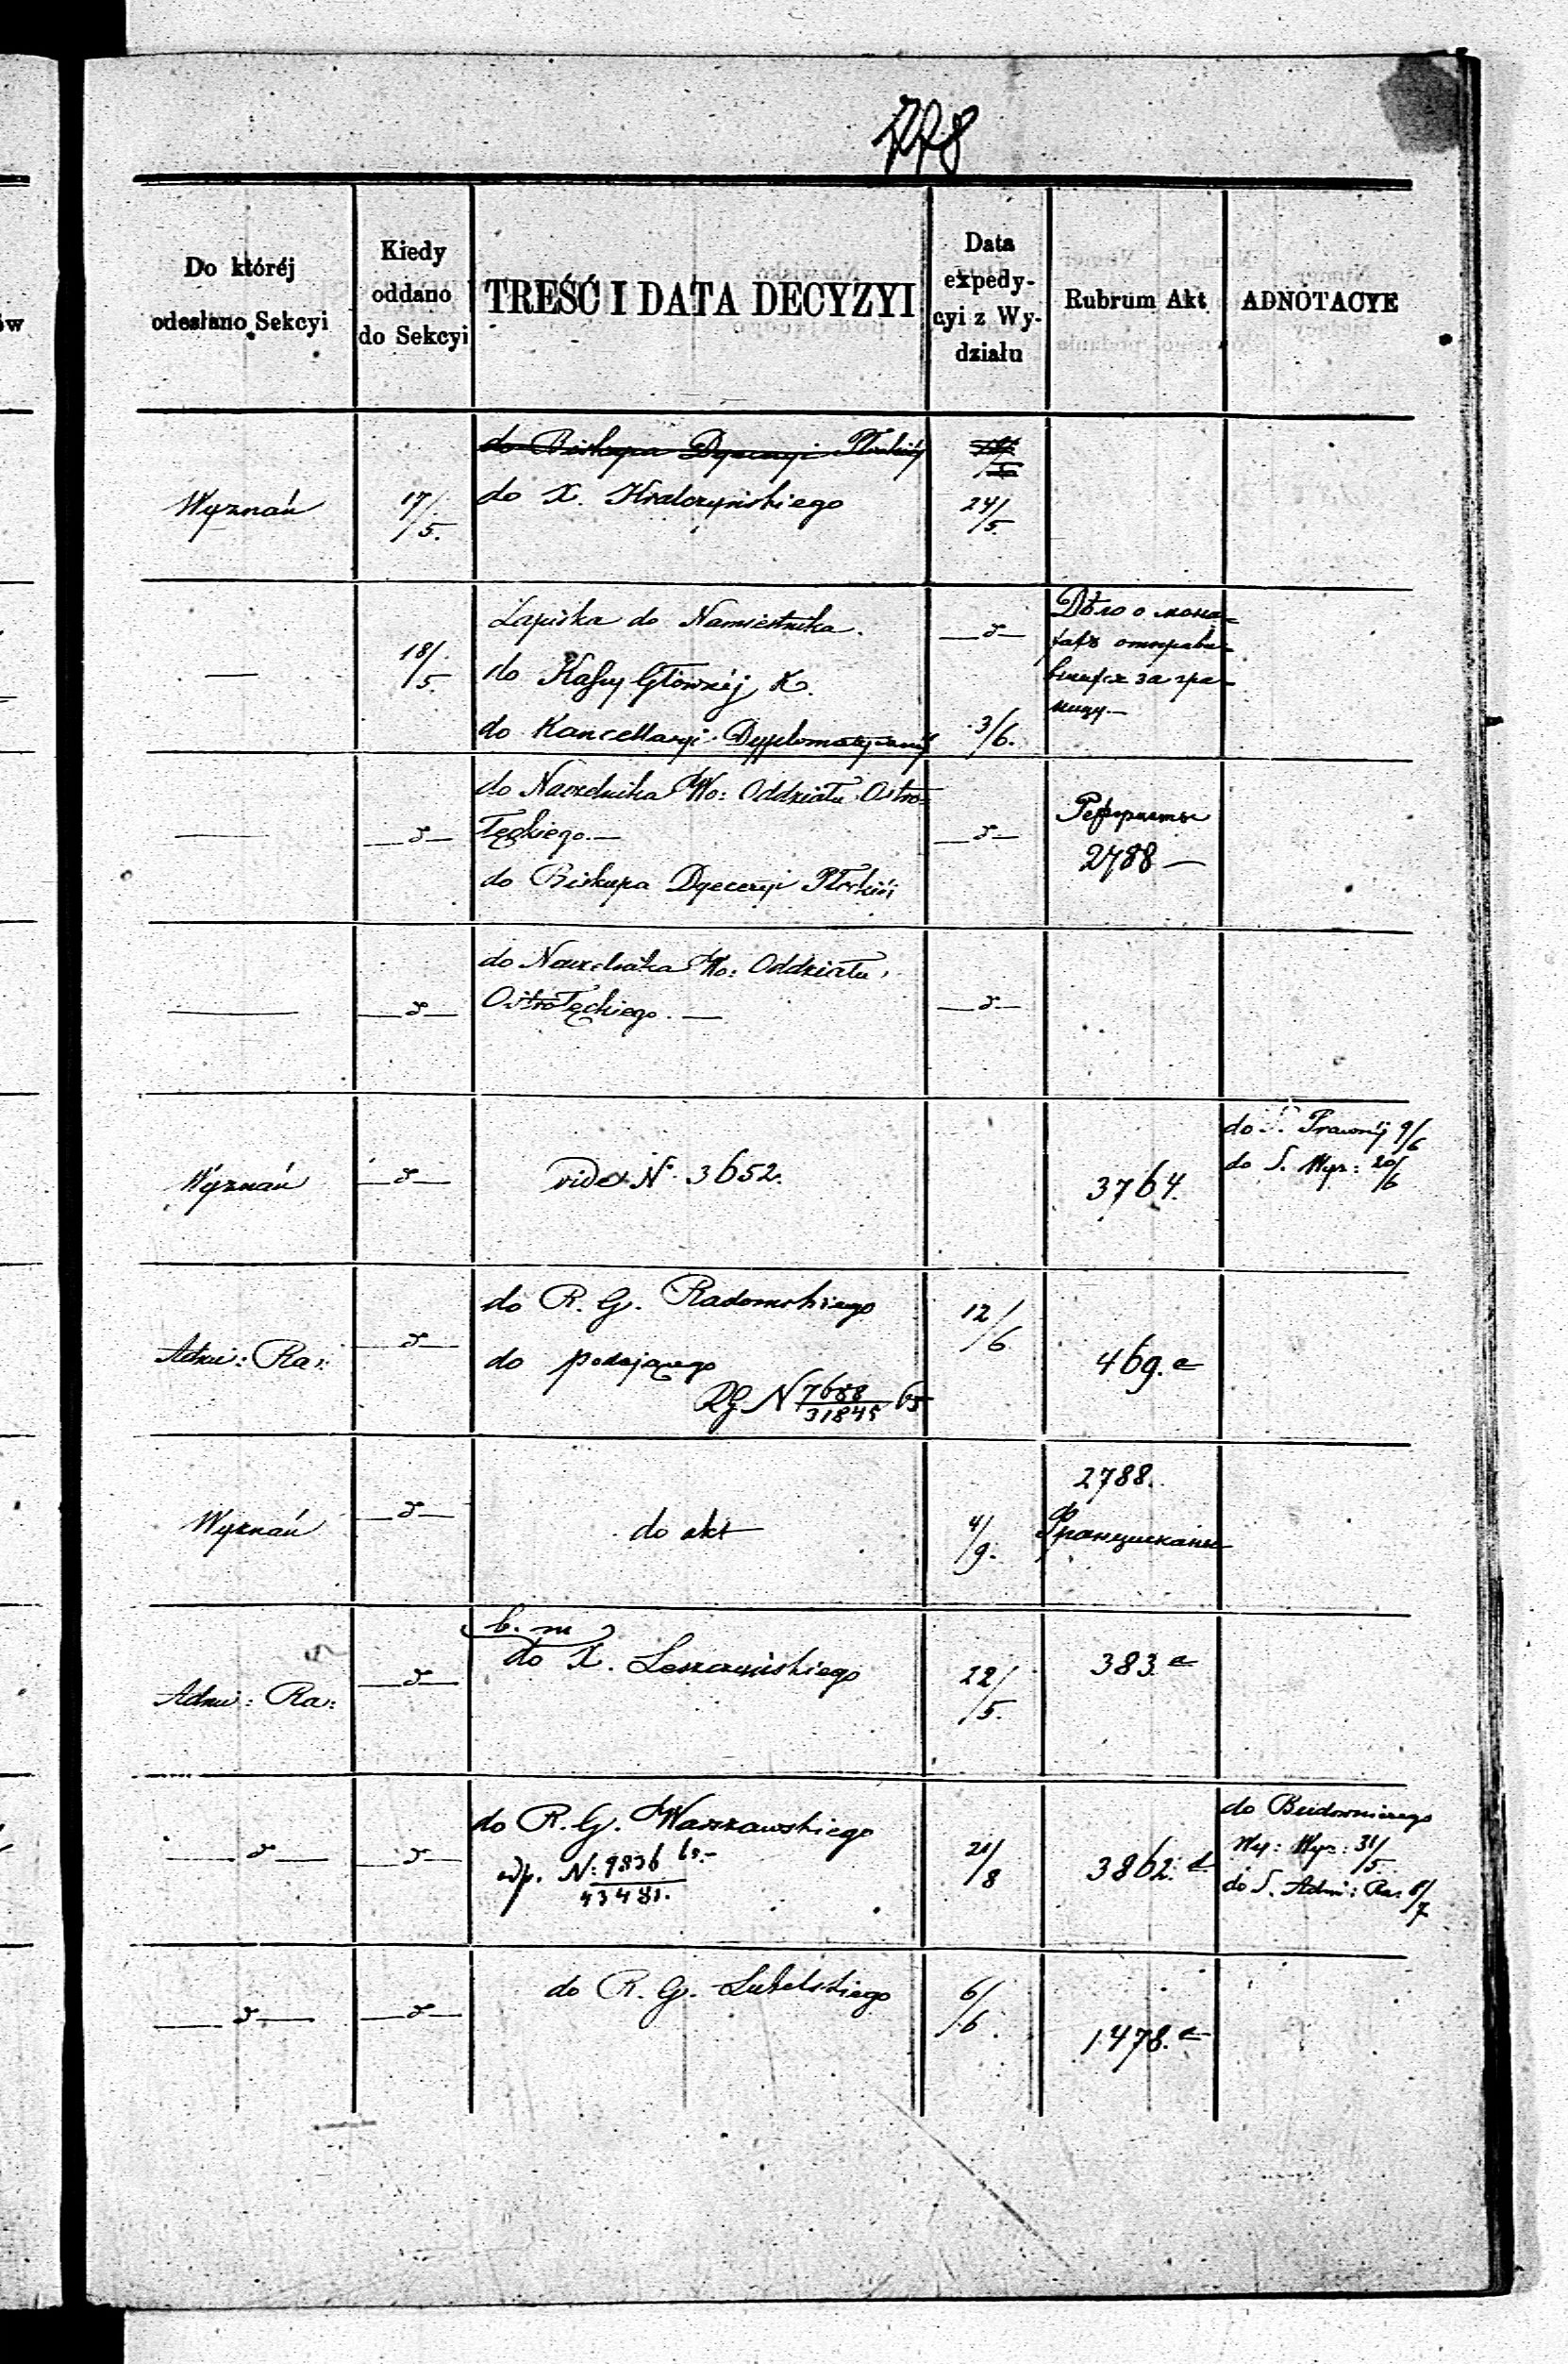 778
Do któréj
odesłano Sekcyi
Kiedy
oddano
do Sekcyi
TREŚĆ I DATA DECYZYI
Data
expedy-
cyi z Wy-
działu
Rubrum Akt
ADNOTACYE
do Biskupa Dyecezyi Płockiéj
Wyznań
17/5.
do X.
24/5.
18/5.
Zapiska do Namiestnika.
do Kassy Głównéj K.
do Kancellaryi Dyplomatycznéj
—d—
3/6.
Дѣло о мона=
хахъ отправи=
вшихся за гра=
ницу.—
—d—
do Naczelnika Wo: Oddziału Ostro=
łęckiego.—
do Biskupa Dyecezyi Płockiéj
—d—
Реформаты
2788 —
—d—
do Naczelnika Wo: Oddziału
Ostrołęckiego. —
—d—
Wyznań
—d—
vide N. 3652.
3764.
do S. Prawnéj 9/6
do S. Wyz: 20/6
Admi: Ra:
—d—
do R. G. Radomskiego
do podającego
RG N 7688/31845 65
12/6
469. c
Wyznań
—d—
do akt
4/9.
2788.
Францискане
Admi: Ra:
—d—
b. m
do X. Leszczyńskiego
22/5.
383. c
—d—
—d—
do R. G. Warszawskiego
odp. N: 9836/43481. 65.-
21/8
3862. d
do Budowniczego
Wy: Wyz: 31/5.
do S. Admi: Ra: 8/7
—d—
—d—
do R. G. Lubelskiego
6/6.
1478. c